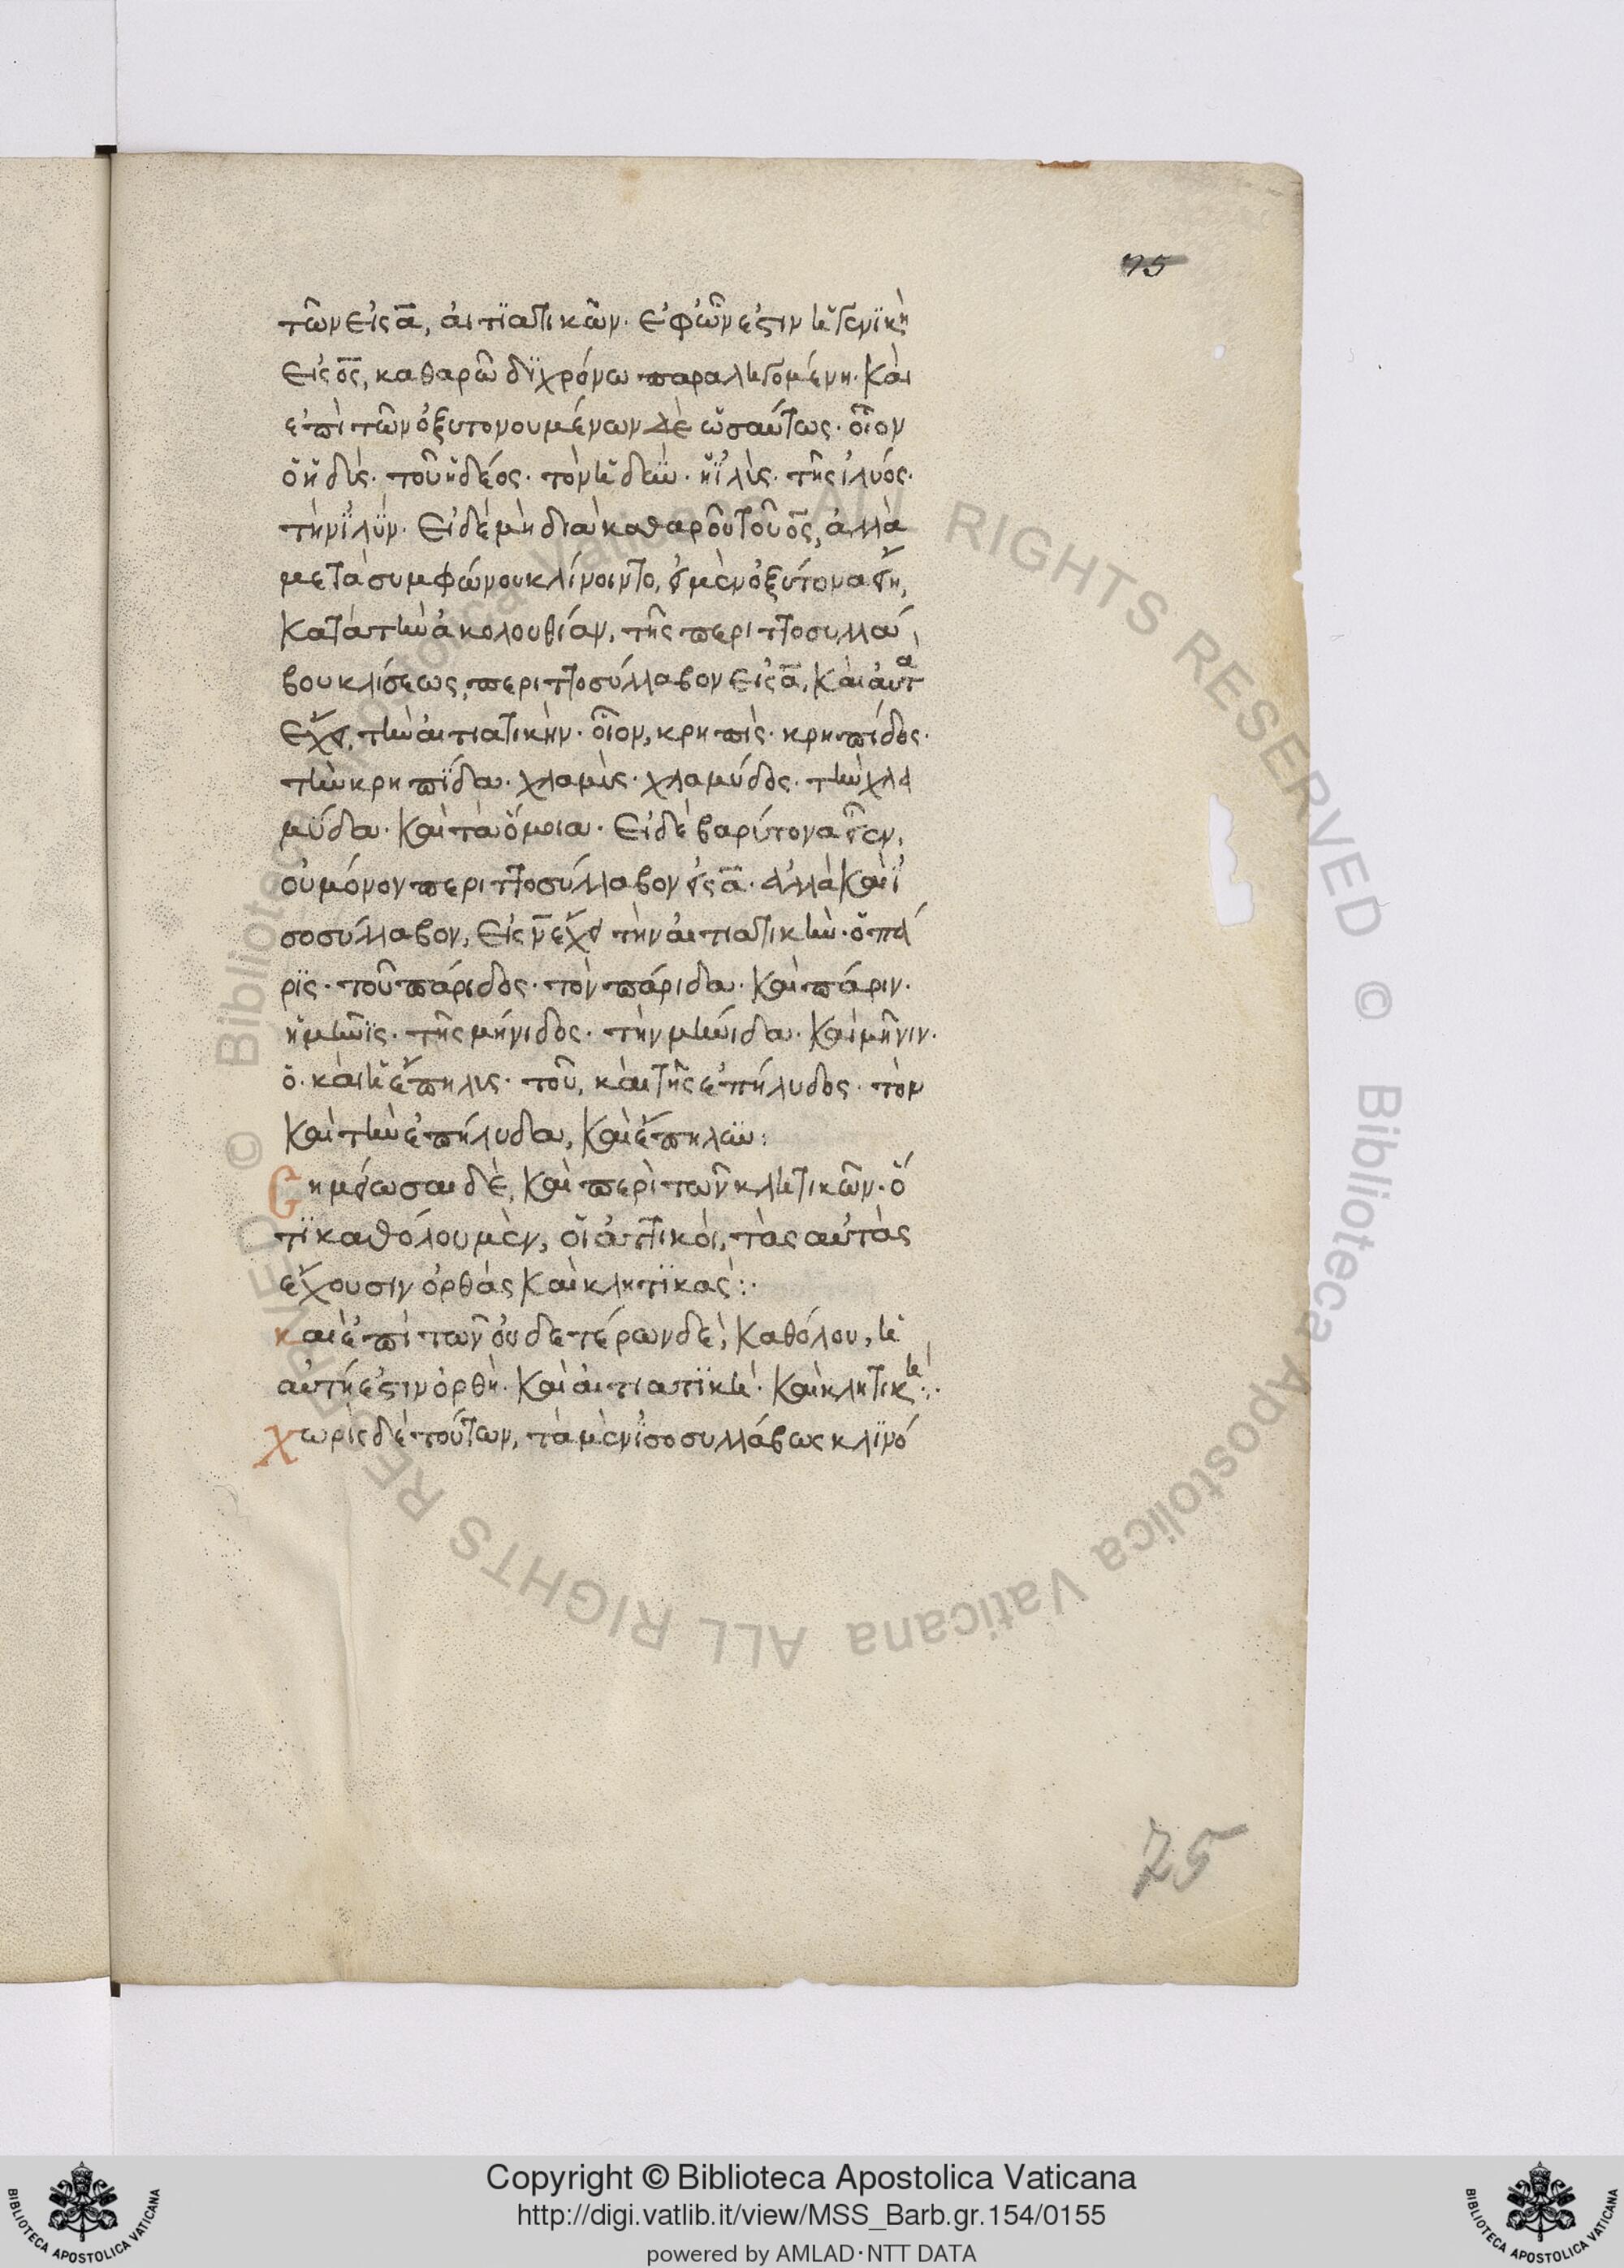 75
τῶν εἰς ᾱ, αἰτϊατικῶν· ἐφ' ὧν ἐστιν ἡ γενϊκὴ
εἰς ο̅ς̅, καθαρῶ δϊχρόνω παραληγομένη. καὶ
ἐπὶ τῶν ὀξυτονουμένων δὲ ὡσαύτως· οἷον
ὁ ἡδὺς· τοῦ ἡδέος· τὸν ἡδὺν· ἡ ἰλὺς· τῆς ἰλυός·
τὴν ἰλὺν· εἰ δὲ μὴ διὰ καθαροῦ τοῦ ο̅ς̅, ἀλλὰ
μετὰ συμφώνου κλίνοιντο, εἰ μὲν ὀξύτονα εἴη,
κατὰ τὴν ἀκολουθίαν, τῆς περιττοσυλλά
βου κλίσεως, περιττοσύλλαβον εἰς ᾱ, καὶ αὐτὰ
ἔχει, τὴν αἰτιατικὴν· οἷον, κρηπὶς· κρηπίδος·
τὴν κρηπῖδα· χλαμὺς· χλαμύδος· τὴν χλα
μύδα· καὶ τὰ ὅμοια· εἰ δὲ βαρύτονα εἶεν,
οὐ μόνον περιττοσύλλαβον εἰς ᾱ· ἀλλὰ καὶ ἰ
σοσύλλαβον, εἰς ν̅ ἔχει τὴν αἰτιατικὴν· ὁ πά
ρϊς· τοῦ πάριδος· τὸν πάριδα· καὶ πάριν·
ἡ μῆνϊς· τῆς μήνιδος· τὴν μήνιδα· καὶ μῆνιν·
ὁ· καὶ ἡ ἔπηλυς· τοῦ, καὶ τῆς ἐπήλυδος· τὸν
καὶ τὴν ἐπήλυδα, καὶ ἔπηλυν:
Σημείωσαι δὲ, καὶ περὶ τῶν κλητικῶν· ὅ
τϊ καθόλου μὲν, οἱ ἀττικοὶ, τὰς αὐτὰς
ἔχουσιν ὀρθὰς καὶ κλητϊκας:·
καὶ ἐπὶ τῶν οὐδετέρων δὲ, καθόλου, ἡ
αὐτή ἐστιν ὀρθὴ· καὶ αἰτιατϊκὴ· καὶ κλητικὴ:·
χωρὶς δὲ τούτων, τὰ μὲν ἰσοσυλλάβως κλϊνό
75
© Biblioteca Apostolica Vaticana ALL RIGHTS RESERVED © Biblioteca Apostolica Vaticana ALL RIGHTS RESERVED
Copyright © Biblioteca Apostolica Vaticana
http://digi.vatlib.it/view/MSS_Barb.gr.154/0155
powered by AMLAD·NTT DATA
BIBLIOTECA APOSTOLICA VATICANA
BIBLIOTECA APOSTOLICA VATICANA